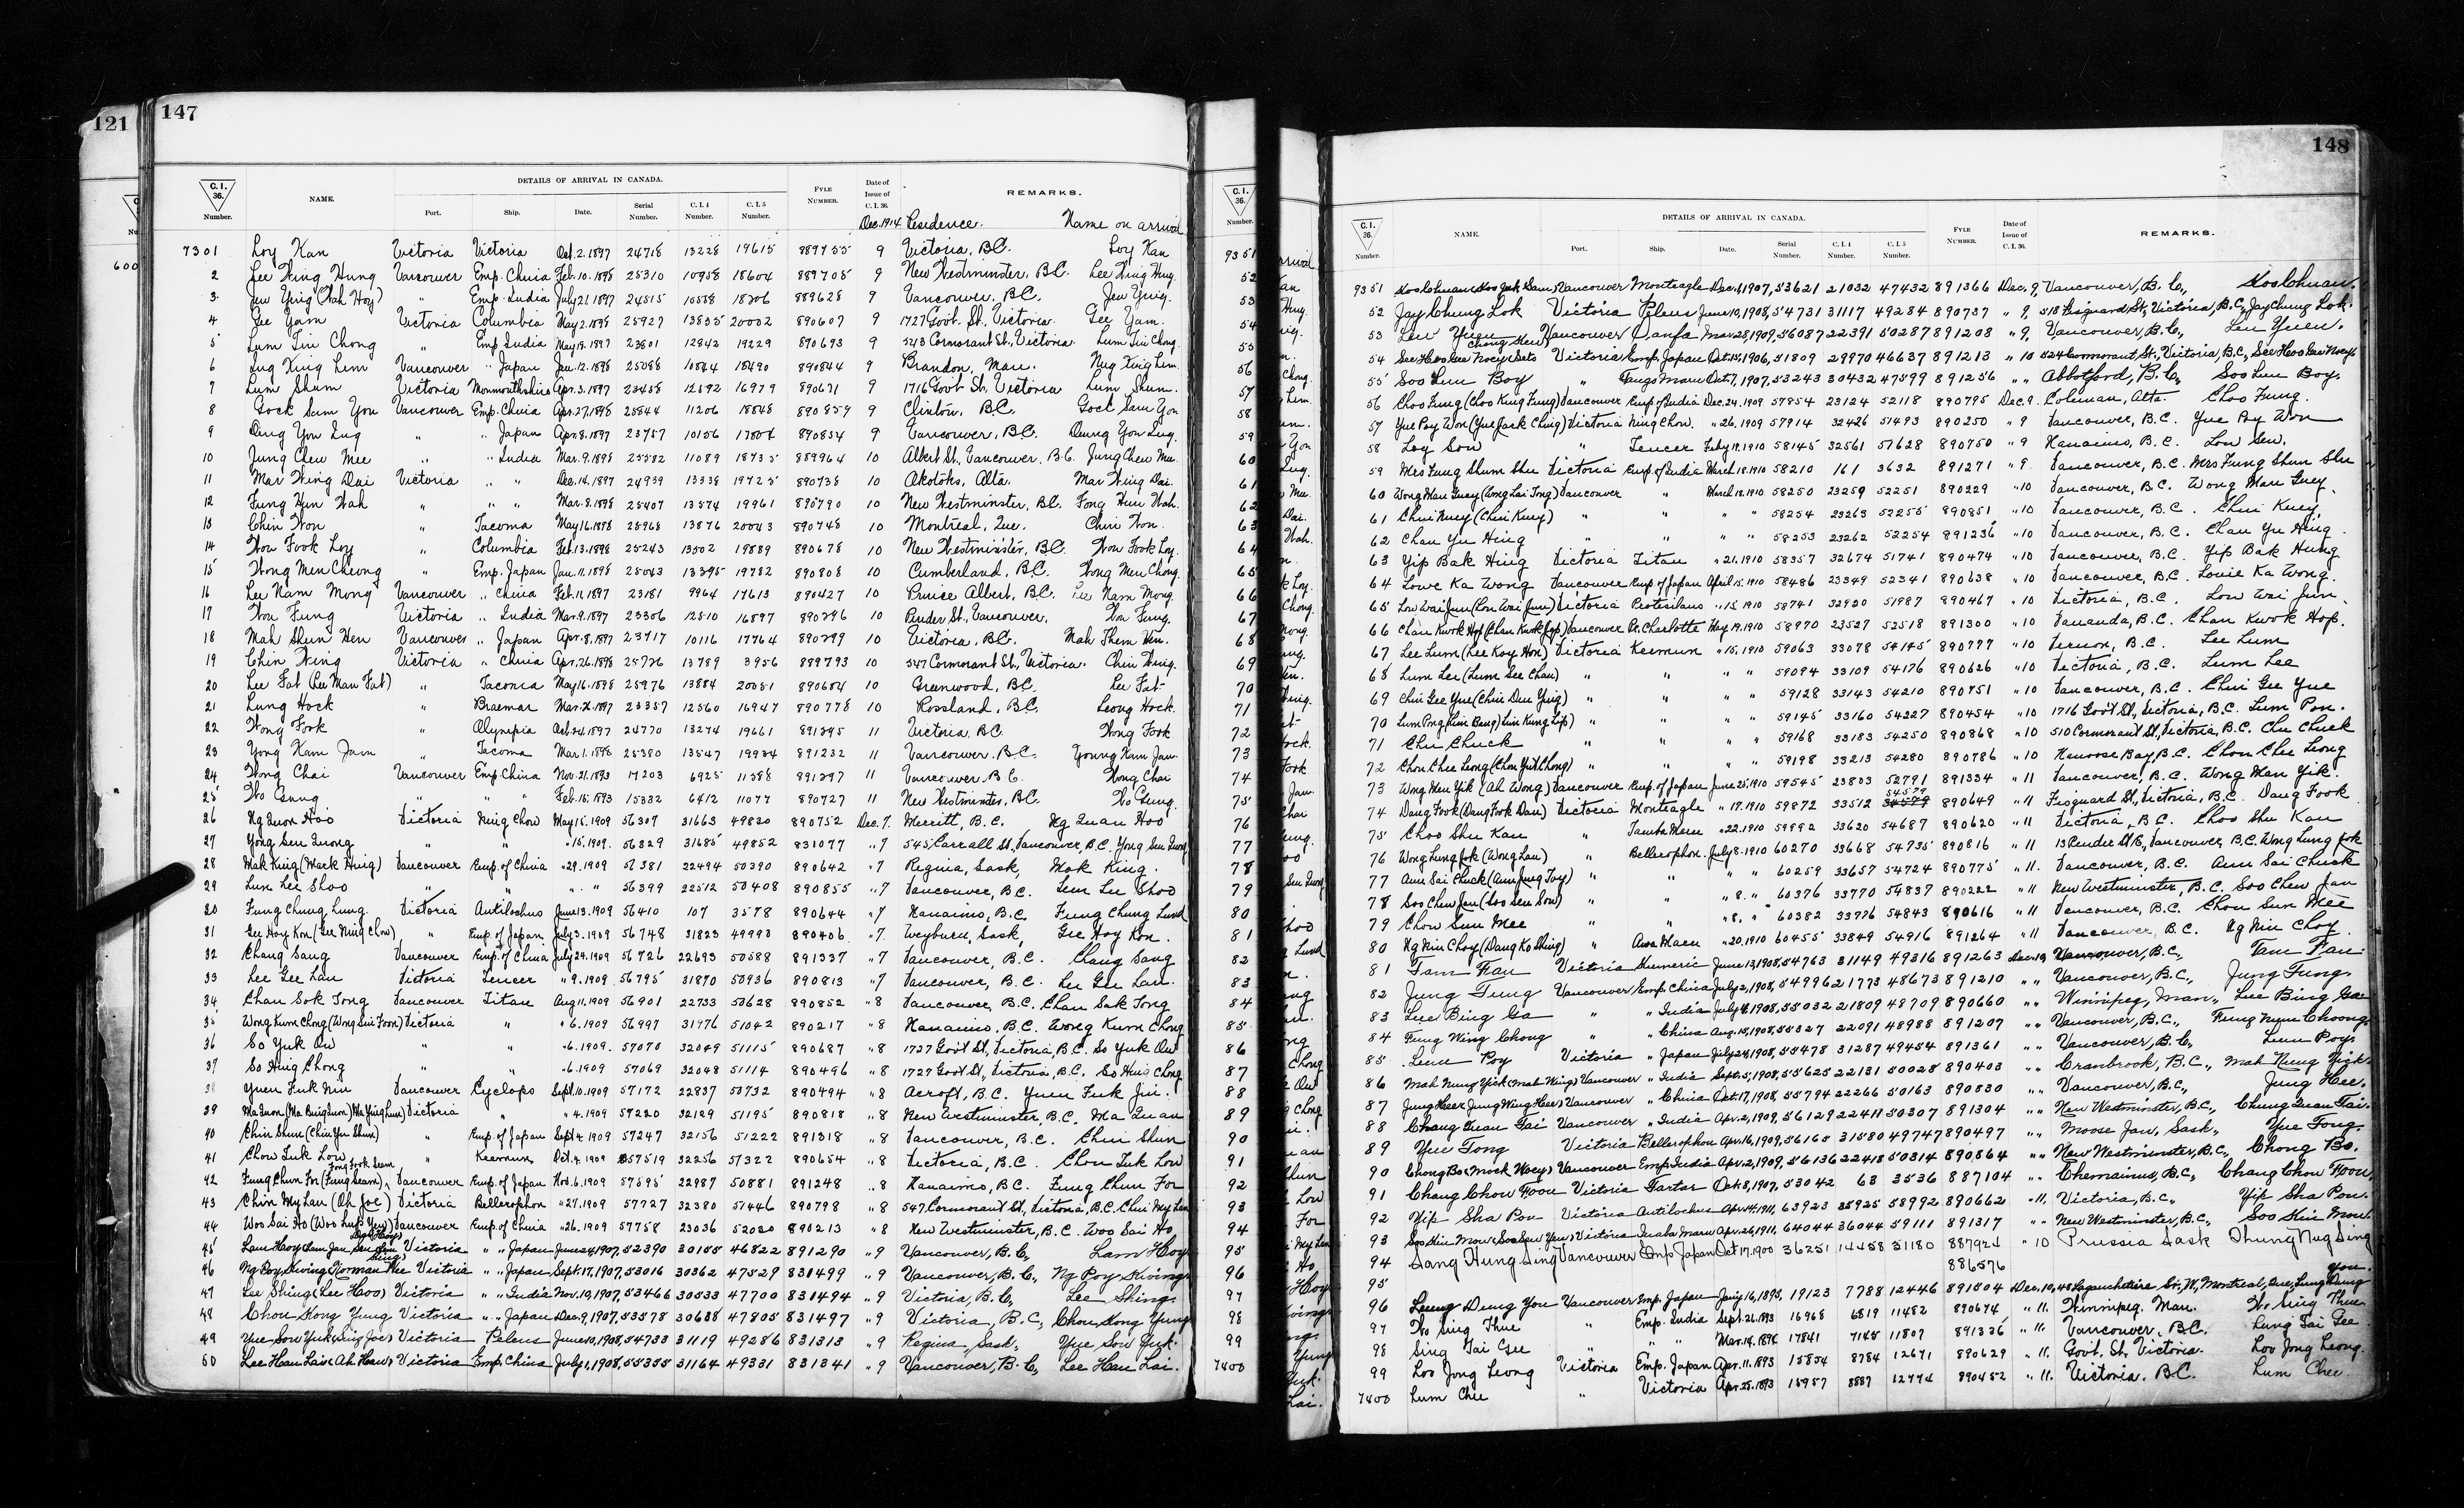 121
147
DETAILS OF ARRIVAL IN CANADA.
C.I. 36. Number. NAME. Port. Ship. Date. Serial Number. C.I.4 Number. C.I.5 Number. FYLE NUMBER. Date of Issue of C.I.36. REMARKS.
Dec. 1914 Residence. Name on arrival
7301 Loy Kan Victoria Victoria Oct. 2. 1897 24718 13228 19615 889755 9 Victoria, B.C. Loy Kan
2 Lee Wing Hung Vancouver Emp. China Feb. 10. 1898 25310 10958 18604 889705 9 New Westminster, B.C. Lee Wing Hung
3 Jew Ying (Wah Hoy) " Emp. India July 21. 1897 24515 10558 18206 889628 9 Vancouver, B.C. Jew Ying.
4 Gee Yam Victoria Columbia May 2. 1898 25927 13835 20002 890607 9 1727 Govt. St., Victoria. Gee Yam.
5 Lum Tin Chong " Emp. India May 18. 1897 23801 12842 19229 890693 9 543 Cormorant St., Victoria. Lum Tin Chong.
6 Lug King Lem Vancouver " Japan Jan. 12. 1898 25088 10844 18490 890844 9 Brandon, Man. Nug King Lem.
7 Lum Shum Victoria Monmouthshire Apr. 3. 1897 23458 12592 16979 890671 9 1716 Govt St. Victoria Lum Shum.
8 Gock Sum You Vancouver Emp. China Apr. 27. 1898 25844 11206 18848 890859 9 Clinton, B.C. Gock Sam You
9 Dung You Lug " " Japan Apr. 8. 1897 23757 10156 17804 890854 9 Vancouver, B.C. Dung You Lug.
10 Jung Chew Mee " " India Mar. 9. 1898 25582 11089 18735 889964 10 Albert St., Vancouver, B.C. Jung Chew Mee.
11 Mar Wing Dai Victoria " " Dec. 14. 1897 24939 13338 19725 890738 10 Okotoks, Alta. Mar Wing Dai.
12 Fung Hun Wah " " " Mar. 8. 1898 25407 13574 19961 890790 10 New Westminster, B.C. Fong Hun Wah.
13 Chin Won " Tacoma May 16. 1898 25968 13876 20043 890748 10 Montreal, Que. Chin Won.
14 Wou Fook Loy " Columbia Feb. 13. 1898 25243 13502 19889 890678 10 New Westminster, B.C. Wou Fook Loy.
15 Wong Men Cheong " Emp. Japan Jan. 11. 1898 25043 13395 19782 890808 10 Cumberland, B.C. Wong Men Chong.
16 Lee Nam Mong Vancouver " China Feb. 11, 1897 23181 9964 17613 890427 10 Prince Albert, B.C. Lee Nam Mong.
17 Wou Fung Victoria " India Mar. 9. 1897 23306 12510 16897 890796 10 Pender St., Vancouver. Wou Fung.
18 Mah Shun Hen Vancouver " Japan Apr. 8. 1897 23717 10116 17764 890799 10 Victoria, B.C. Mah Them Hen.
19 Chin Wing Victoria " China Apr. 26. 1898 25726 13789 3956 889793 10 547 Cormorant St., Victoria. Chin Wing.
20 Lee Fat (Lee Man Fat) " Tacoma May 16. 1898 25976 13884 20051 890684 10 Greenwood, B.C. Lee Fat
21 Lung Hock " Braemar Mar. 21. 1897 23357 12560 16947 890778 10 Rossland, B.C. Leong Hock.
22 Wong Fook " Olympia Oct. 24. 1897 24770 13274 19661 891295 11 Victoria, B.C. Wong Fook
23 Yong Kam Jam " Tacoma Mar. 1. 1898 25380 13547 19934 891232 11 Vancouver, B.C. Young Kam Jam
24 Wong Chai Vancouver Emp. China Nov. 21. 1893 17203 6925 11588 891297 11 Vancouver, B.C. Wong Chai
25 Wo Gung " " " Feb. 15. 1893 15332 6412 11077 890727 11 New Westminster, B.C. Wo Gung.
26 Ng Quon Hoo Victoria Ning Chow May 15. 1909 56307 31663 49830 890752 Dec. 7. Merritt, B.C. Ng Quan Hoo
27 Yong Seu Quong " " " 15. 1909. 56329 31685 49852 831077 " 7 545 Carrall St. Vancouver, B.C. Yong Seu Quong
28 Mak King (Mark Hing) Vancouver Emp. of China " 29. 1909 56381 22494 50390 890642 " 7 Regina, Sask, Mak King.
29 Lun Lee Shoo " " " " 56399 22512 50408 890855 " 7 Vancouver, B.C. Lun Lee Shoo
30 Fung Chung Lung Victoria Antilochus June 13. 1909 56410 107 3578 890644 " 7 Nanaimo, B.C. Fung Chung Lund
31 Gee Hoy Kon (Gee Ning Chow) " Emp. of Japan July 3. 1909 56748 31823 49990 890406 " 7. Weyburn, Sask, Gee Hoy Kon.
32 Chang Sang Vancouver Emp. of China July 24. 1909 56726 22693 50588 891337 " 7 Vancouver, B.C. Chang Sang
33 Lee Gee Lau Victoria Teucer " 9. 1909 56795 31870 50936 890813 " 7 Vancouver, B.C. Lee Gee Lau.
34 Chan Sok Tong Vancouver Titan Aug 11. 1909 56901 22733 50628 890852 " 8 Vancouver, B.C. Chan Sok Tong
35 Wong Kum Chong (Wong Sui Foon) Victoria " " 6. 1909 56997 31976 51042 890217 " 8 Nanaimo, B.C. Wong Kum Chong
36 So Yuk Ow " " " 6. 1909. 57070 32049 51115 890687 " 8 1727 Gov't St, Victoria, B.C. So Yuk Ow
37 So Hing Chong " " " 6. 1909 57069 32048 51114 890496 " 8 1727 Gov't St, Victoria, B.C. So Hing Chong
38 Yuen Fuk Niu Vancouver Cyclops Sept. 10. 1909 57172 22837 50732 890494 " 8 Acroft, B.C. Yuen Fuk Jui.
39 Ma Quon (Ma Bing Sun) Ma Ying Lun) Victoria " " 4. 1909 57220 32129 51195 890818 " 8 New Westminster, B.C. Ma Quan
40 Chin Shun (Chin Yu Shun) " Emp. of Japan Sept. 4. 1909 57247 32156 51222 891318 " 8 Vancouver, B.C. Chin Shun
41 Chow Tuk Low " Keemun Oct. 4. 1909 57519 32256 51322 890654 " 8 Victoria, B.C. Chow Tuk Low
42 Fung Chun For (Fung Seam) Fong Fook Seem Vancouver Emp. of Japan Nov. 6. 1909 57595 22987 50881 891248 " 8 Nanaimo, B.C. Fung Chun For
43 Chin My Lau (Ah Joe) Victoria Bellerophon " 27. 1909 57727 32380 51446 890798 " 8 547 Cormorant St, Victoria, B.C. Chin My Lau
44 Woo Sai Ho (Woo Lup Yeu) Vancouver Emp. of China " 26. 1909 57758 23036 52020 890213 " 8 New Westminster, B.C. Woo Sai Ho
45 Lam Hoy (Lam Jan Victoria " " Japan June 24, 1907, 52390 30155 46822 891290 " 9 Vancouver, B.C., Lam Hoy
46 Ng Poy Kwing (Norman Wee Victoria " " Japan Sept. 17, 1907, 53016 30362 47529 831499 " 9 Vancouver, B.C., Ng Poy Kwing
47 Lee Shing (Lee Hoo) Victoria " " India Nov. 19, 1907, 53466 30533 47700 831494 " 9 Victoria, B.C, Lee Shing
48 Chou Kong Yung Victoria " " Japan Dec. 9, 1907, 53578 30638 47805 831497 " 9 Victoria, B.C, Chou Kong Yung
49 Yue Sow Yuk (Sing Joe) Victoria Peleus June 10, 1908, 54733 31119 49286 831313 " 9 Regina, Sask, Yue Sow Yuk.
50 Lee Han Lai (Ah Hew) Victoria Emp. China July 1, 1908, 55355 31164 49331 831341 " 9 Vancouver, B.C, Lee Han Lai.
C.I. 36. Number.
9351
52
53
54
55
56
57
58
59
60
61
62
63
64
65
66
67
68
69
70
71
72
73
74
75
76
77
78
79
80
81
82
83
84
85
86
87
88
89
90
91
92
93
94
95
96
97
98
99
7400
148
DETAILS OF ARRIVAL IN CANADA.
C.I. 36. Number. NAME. Port. Ship. Date. Serial Number. C.I.4 Number. C.I.5 Number. FYLE NUMBER. Date of Issue of C.I.36. REMARKS.
9351 Koo Chuan (Koo Jak Sam) Vancouver Monteagle Dec. 4, 1907, 53621 21032 47432 891366 Dec. 9, Vancouver, B.C., Koo Chuan.
52 Jay Chung Lok Victoria Peleus June 10, 1908, 54731 31117 49284 890737 " 9, 518 Fisguard St, Victoria, B.C, Jay Chung Lok.
53 Lew Yuen Vancouver Oanfa Mar. 28, 1909, 56087 22391 50287 891208 " 9, Vancouver, B.C., Lew Yuen.
54 See Hoo Gee Victoria Emp. Japan Oct. 15, 1906, 51809 29970 46637 891213 " 10 524 Cormorant, St., Victoria, B.C,
55 Soo Lun Boy " Tango Maru Oct. 7, 1907, 53243 30432 47599 891256 " " Abbotsford, B.C., Soo Lun Boy.
56 Choo Fung (Choo King Fung) Vancouver Emp. of India Dec. 24. 1909 57854 23124 52118 890795 Dec. 9. Coleman, Alta. Choo Fung.
57 Yue Poy Won (Yue Jack Ching) Victoria Ning Chow. " 26. 1909 57914 32426 51493 890250 " 9 Vancouver, B.C. Yue Poy Won
58 Loy Sow " Teucer Feby 19. 1910 58145 32561 51628 890750 " 9 Nanaimo, B.C. Low Sew.
59 Mrs Fung Shum Shu Victoria Emp. of India March 18. 1910 58210 161 3632 891271 " 9. Vancouver, B.C. Mrs Fung Shun Shu
60 Wong Man Guey (Wong Lai Tong) Vancouver " March 18. 1910 58250 23259 52251 890229 " 10 Vancouver, B.C. Wong Man Guey.
61 Chin Kuey (Chin Kuey) " " " " 58254 23263 52255 890851 " 10 Vancouver, B.C. Chin Kuey
62 Chan Yu Hing " " " " 58253 23262 52254 891236 " 10 Vancouver, B.C. Chan Yu Hing
63 Yip Bak Hing Victoria Titan " 21. 1910 58357 32674 51741 890474 " 10 Vancouver, B.C. Yip Bak Hung
64 Lowe Ka Wong Vancouver Emp. of Japan April 15. 1910 58486 23349 52341 890638 " 10 Vancouver, B.C. Louie Ka Wong.
65 Low Wai Jun (Lou Wai June) Victoria Protesilaus " 15. 1910 58741 32920 51987 890467 " 10 Victoria, B.C. Low Wai Jun.
66 Chan Kwok Hop (Chan Kwok Jop) Vancouver Pr. Charlotte May 19. 1910 58970 23527 52518 891300 " 10 Vananda, B.C. Chan Kwok Hop.
67 Lee Lum (Lee Koy Hon) Victoria Keemun " 15. 1910 59063 33078 54145 890777 " 10 Vernon, B.C. Lee Lum
68 Lum Lee (Lum See Chau) " " " " 59094 33109 54176 890626 " 10 Victoria, B.C. Lum Lee
69 Chin Gee Yue (Chin Duu Ying) " " " " 59128 33143 54210 890751 " 10 Vancouver, B.C. Chin Gee Yue
70 Lum Png (Lim Bang) Lim Kung Lip) " " " " 59145 33160 54227 890454 " 10 1716 Gov't St, Victoria, B.C. Lum Pon.
71 Chu Chuck " " " " 59168 33183 54250 890868 " 10 510 Cormorant St, Victoria, B.C. Chu Chuck
72 Chou Chee Leong (Chou Yuk Chong) " " " " 59198 33213 54280 890786 " 10 Nanoose Bay, B.C. Chou Chee Leong
73 Wong Man Yik (Ah Wong) Vancouver Emp. of Japan June 25, 1910 59545 23803 52791 891334 " 11 Vancouver, B.C. Wong Man Yik.
74 Dang Fook (Dang Fook Dan) Victoria Monteagle " 17. 1910 59872 33512 54579 890649 " 11 Fisguard St, Victoria, B.C. Dang Fook
75 Choo Shu Kau " Tamba Maru " 22. 1910 59992 33620 54687 890620 " 11 Victoria, B.C. Choo Shu Kau
76 Wong Lung Jok (Wong Lau) " Bellerophon. July 8. 1910 60270 33668 54735 890816 " 11 13 Pender St E, Vancouver, B.C. Wong Lung Jok
77 Aun Sai Chuck (Aun Jung Toy) " " " " 60259 33657 54724 890775 " 11. Vancouver, B.C. Aun Sai Chuck
78 Soo Chew Jan (Soo Seu Sow) " " " 8. " 60376 33770 54837 890222 " 11 New Westminster, B.C. Soo Chew Jan
79 Chow Sun Mee " " " 8. " 60382 33776 54843 890616 " 11 Vancouver, B.C. Chow Sun Mee
80 Ng Min Choy (Dang Ko Shing) " Awa Maru " 20. 1910 60455 33849 54916 891264 " 11 Vancouver, B.C. Ng Min Choy
81 Tam Fau Victoria Kumeric June 13, 1908, 54763 31149 49316 891263 Dec. 10, Vancouver, B.C., Tam Fau
82 Jung Tung Vancouver Emp. China July 2, 1908, 54996 21773 48673 891210 " " Vancouver, B.C., Jung Tung
83 Lue Bing Ga " " India July 14, 1908, 55032 21809 48709 890660 " " Winnipeg, Man., Lue Bing Ga
84 Fung Wing Chong " " China Aug. 15, 1908, 55327 22091 48988 891207 " " Vancouver, B.C., Fung Num Choong
85 Leun Poy Victoria " Japan July 24, 1908, 55478 31287 49454 891361 " " Vancouver, B.C, Leun Poy.
86 Mah Nung Yick (Mah Wing) Vancouver " India Sept. 5, 1908, 55625 22131 50028 890403 " " Cranbrook, B.C., Mah Nung Yick
87 Jung Hee (Jung Wing Hee) Vancouver " China Oct. 17, 1908, 55794 22266 50163 890830 " " Vancouver, B.C., Jung Hee.
88 Chang Quan Tai Vancouver " India Apr. 2, 1909, 56129 22411 50307 891304 " " New Westminster, B.C., Chung Quan Tai.
89 Yue Fong Victoria Bellerophon Apr. 16, 1909, 56165 31580 49747 890497 " " Moose Jaw, Sask, Yue Fong.
90 Chong Bo (Mock Nocy) Vancouver Emp. India Apr. 2, 1909, 56136 22418 50314 890864 " " New Westminster, B.C., Chong Bo.
91 Chang Chow Foon Victoria Tartar Oct. 8, 1907, 53042 68 3536 887104 " " Chemainus, B.C., Chang Chow Foon
92 Yip Sha Pon Victoria Antilochus Apr. 14, 1911, 63923 35925 58992 890662 " 11, Victoria, B.C., Yip Sha Pon.
93 Soo Kin Mow (Soo Sow Yeu) Victoria Inaba Maru Apr. 26, 1911, 64044 36044 59111 891317 " " New Westminster, B.C., Soo Kin Mow.
94 Sang Hung Sing Vancouver Emp Japan Oct 17. 1900 36251 14458 31180 887924 " 10 Prussia Sask Chung Nug Sing
95 886576 you.
96 Leung Dung You Vancouver Emp. Japan Jany 16, 1895, 19123 7788 12446 891504 Dec. 10, 48 Lagauchetière St. W, Montreal, Que, Lung Dung
97 Wo Sing Thue " Emp. India Sept. 26. 1893 16968 6819 11482 890674 " 11. Winnipeg, Man. Wo Sing Thue
98 Sing Tai Gee " " " Mar. 14. 1894 17841 7145 11807 891336 " 11. Vancouver, B.C. Lung Tai Gee
99 Loo Jong Leong Victoria Emp. Japan Apr. 11. 1893 15854 8784 12671 890629 " 11. Govt. St. Victoria. Loo Jong Leong.
7400 Lum Chee " Victoria Apr. 25. 1893 15957 8887 12774 890452 " 11. Victoria, B.C. Lum Chee